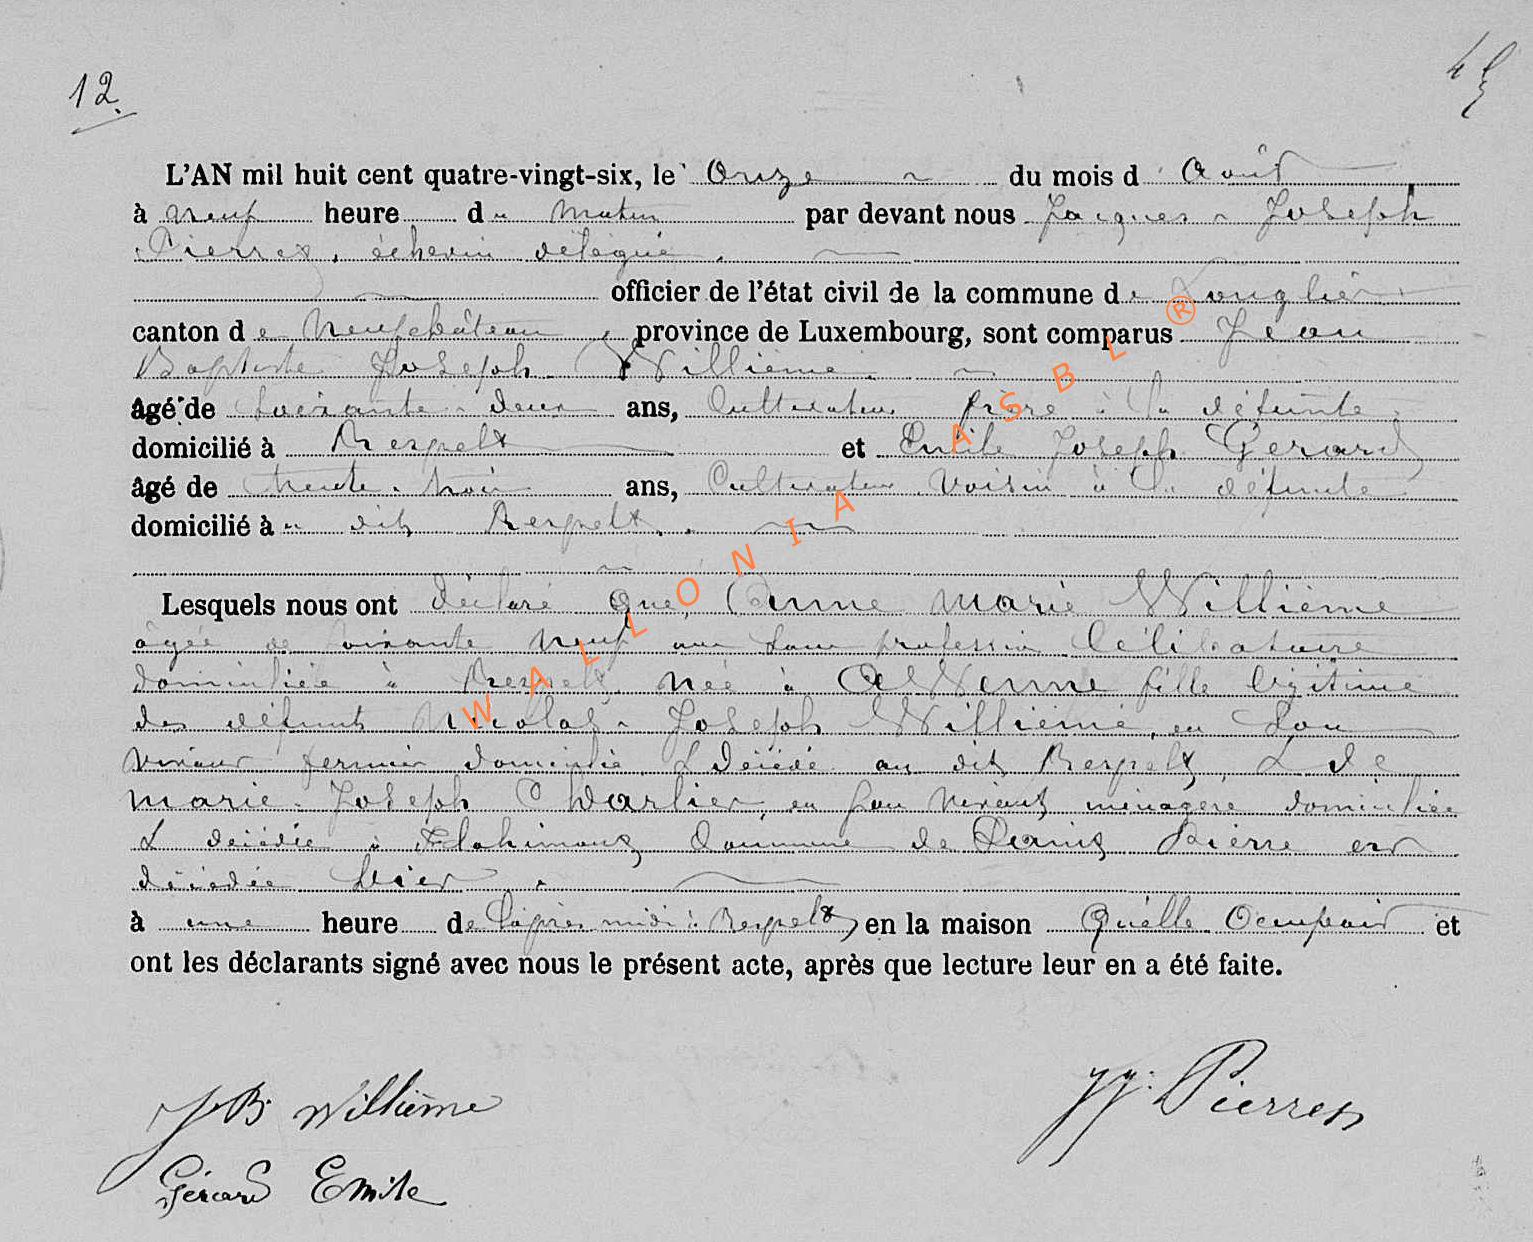 12.
L'AN mil huit cent quatre-vingt-six, le Onze du mois d' Août
à neuf heure du matin par devant nous Jacques - Joseph
Pierret, échevin délégué,
officier de l'état civil de la commune de Longlier
canton de Neufchâteau, province de Luxembourg, sont comparus Jean
Baptiste Joseph Willième
âgé de Soixante - deux ans, Cultivateur frère à la défunte
domicilié à Respelt et Emile Joseph Gerard
âgé de trente - trois ans, Cultivateur Voisin à la défunte
domicilié à dit Respelt.
Lesquels nous ont déclaré Que, Anne Marie Willième
âgée de soixante neuf ans Sans profession Célibataire
domiciliée à Respelt née à fille légitime
des défunts Nicolas - Joseph Willième, en Son
vivant fermier domicilié & décédé au dit Respelt, & de
Marie - Joseph Charlier, en Son vivant ménagère domiciliée
& décédée à Flohimont, Commune de Pierre est
décédée hier
à une heure de l'après midi à Respelt, en la maison Qu'elle Occupait et
ont les déclarants signé avec nous le présent acte, après que lecture leur en a été faite.
WALLONIA ASBL ®
JB Willième
JJ. Pierret
Gérard Emile